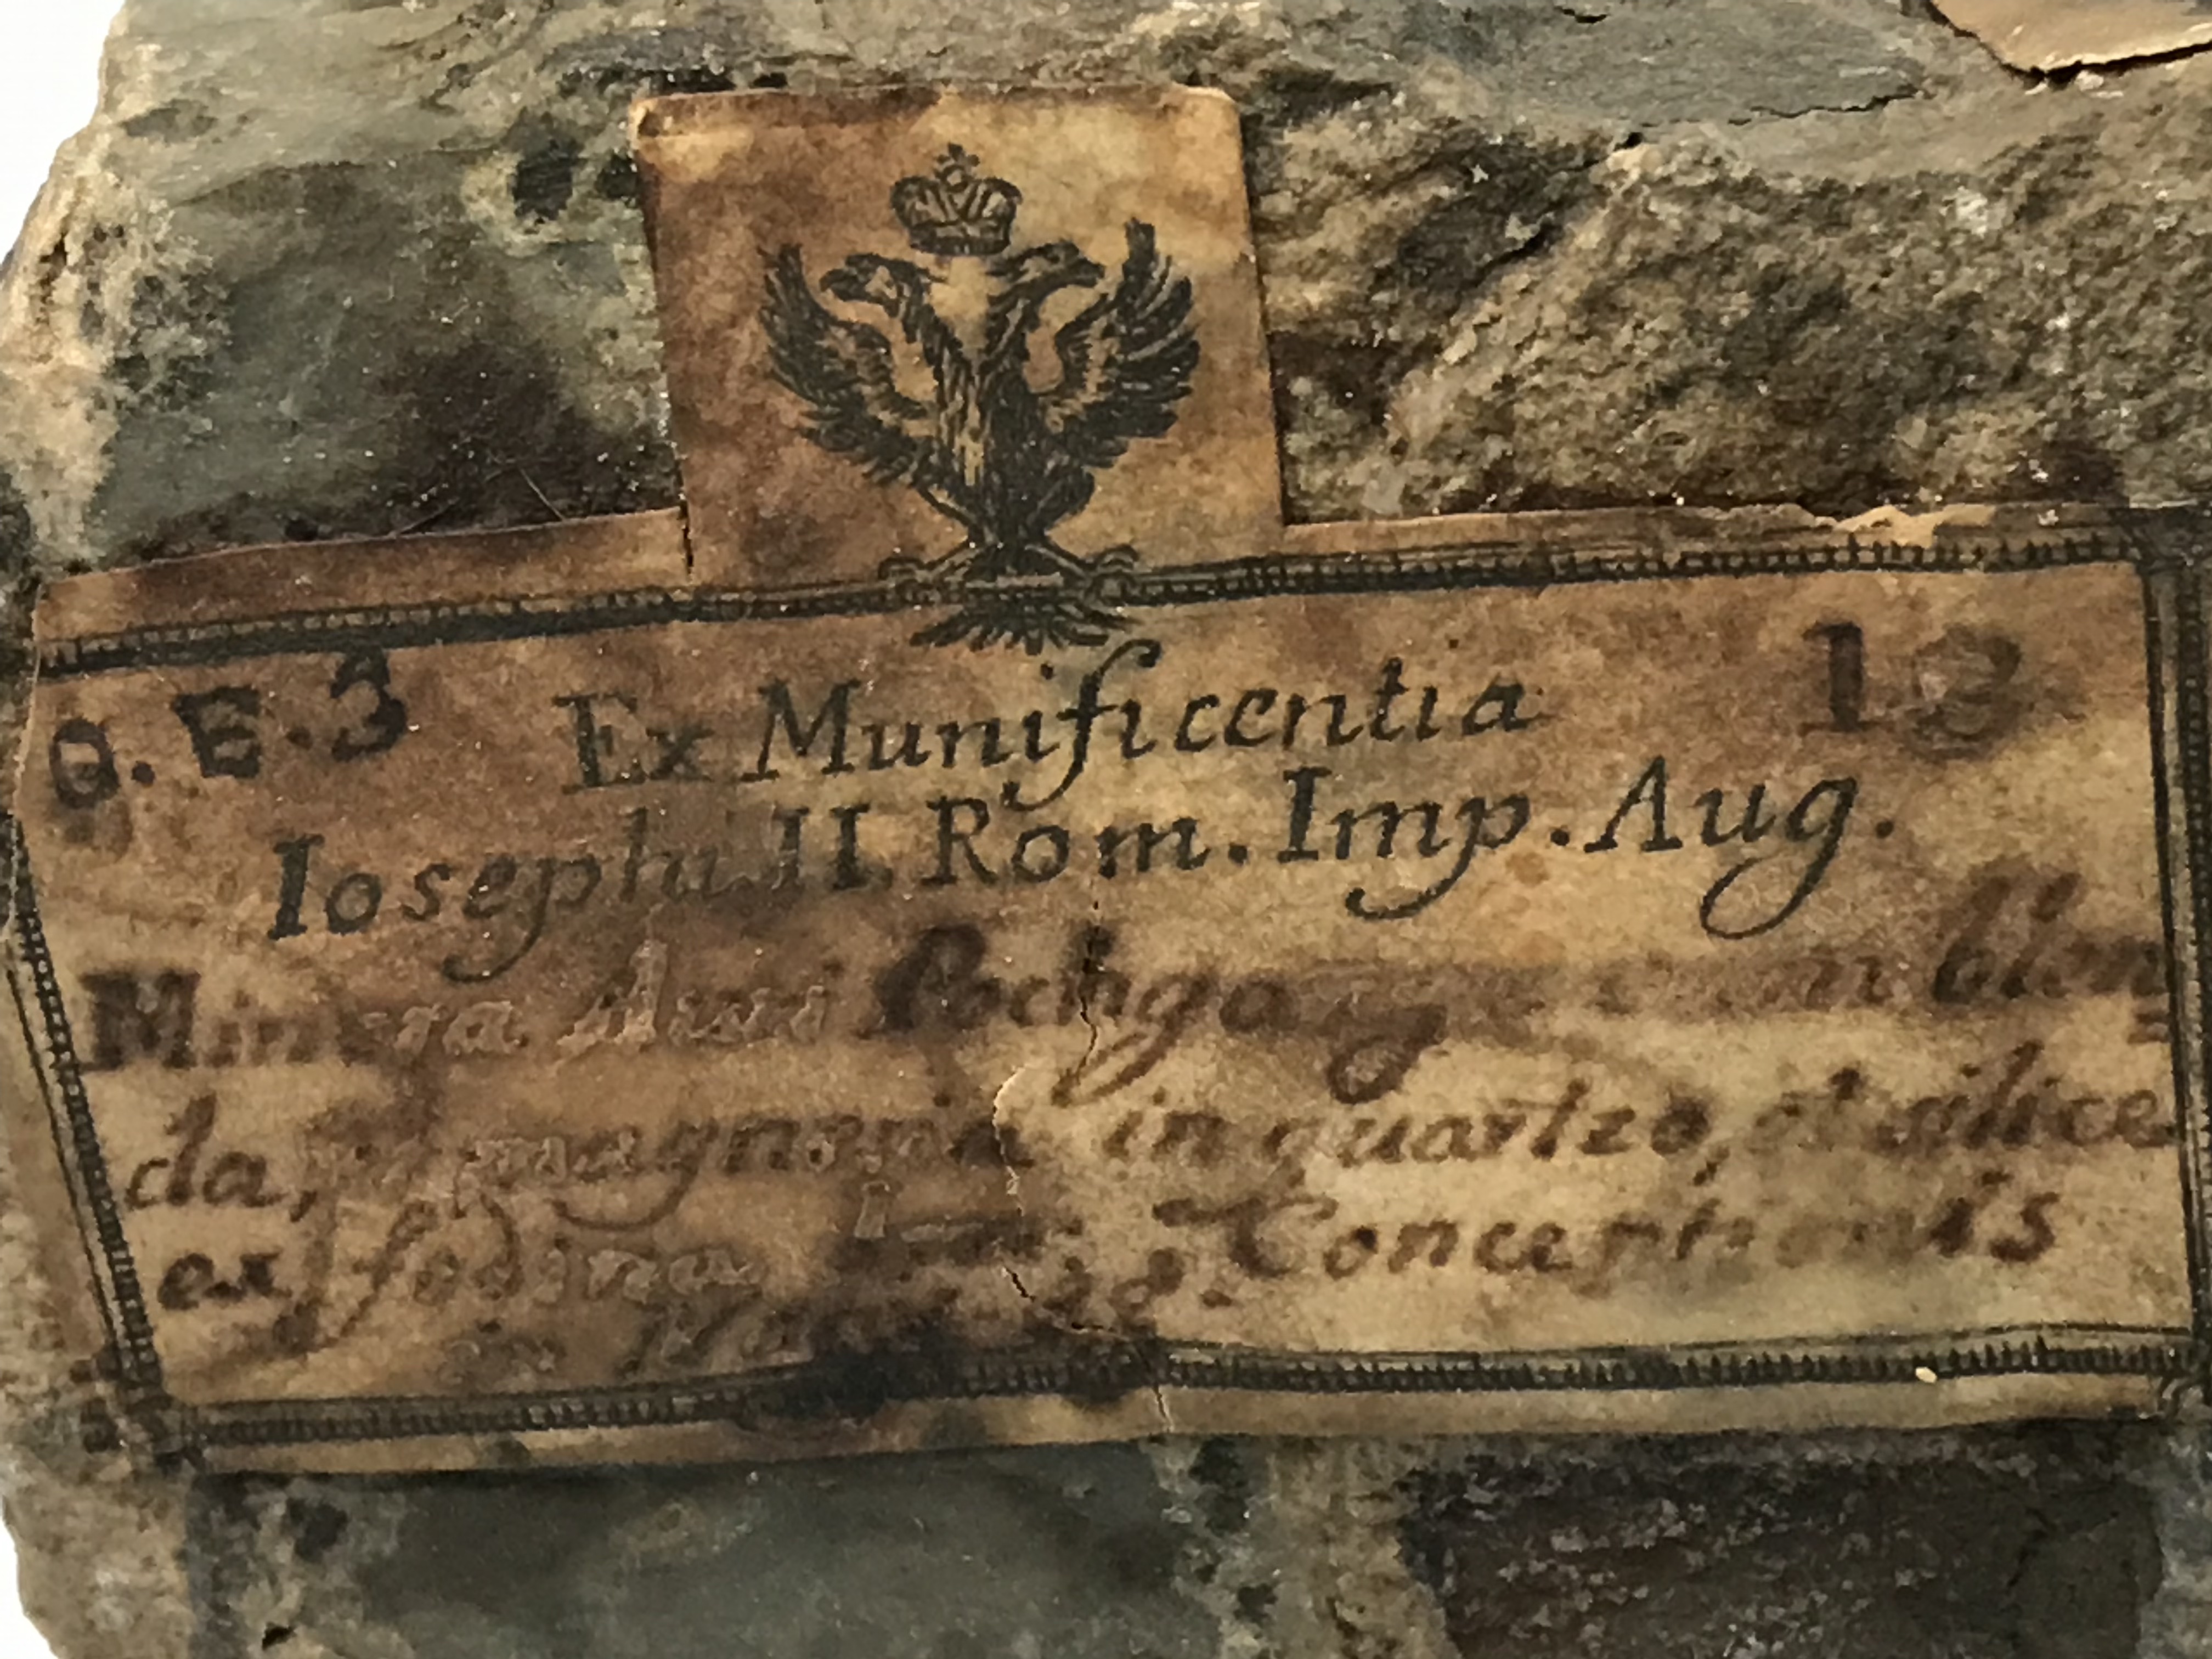 Q. E. 3 Ex Munificentia 13
Iosephi II. Rom. Imp. Aug.
Minera Auri cum blen
da, magnesia in quartzo, et silice
ex fodina Concertionis